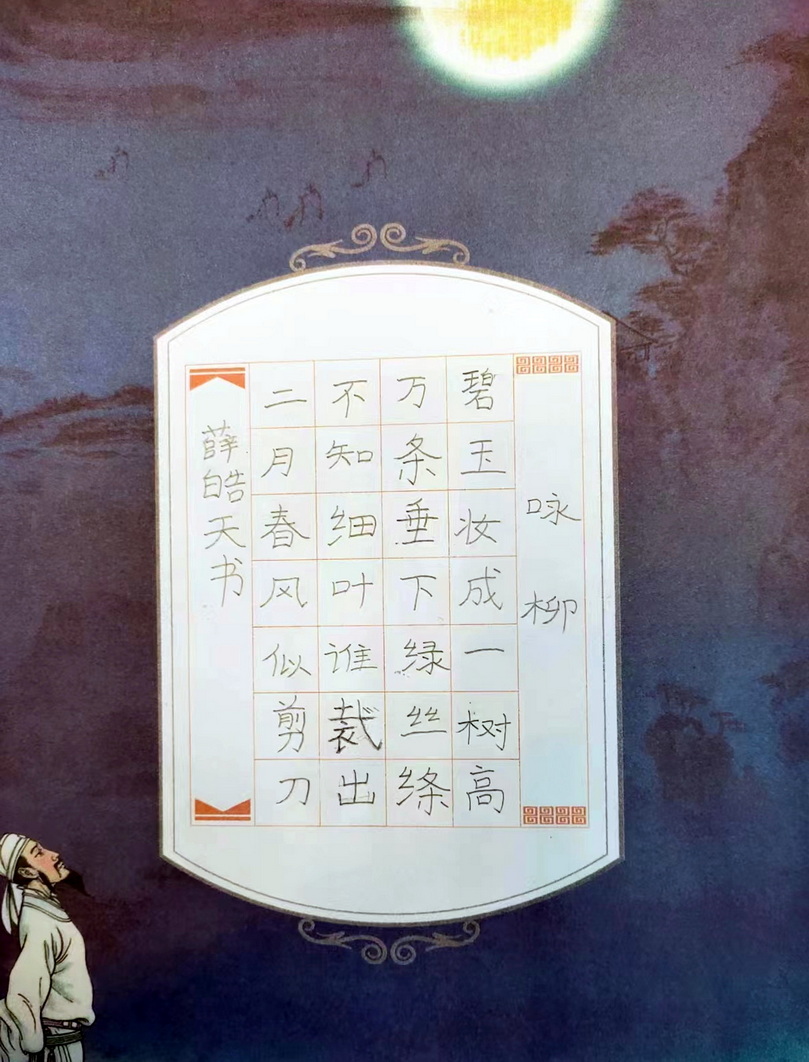 咏柳
碧玉妆成一树高
万条垂下绿丝绦
不知细叶谁裁出
二月春风似剪刀
薛皓天书